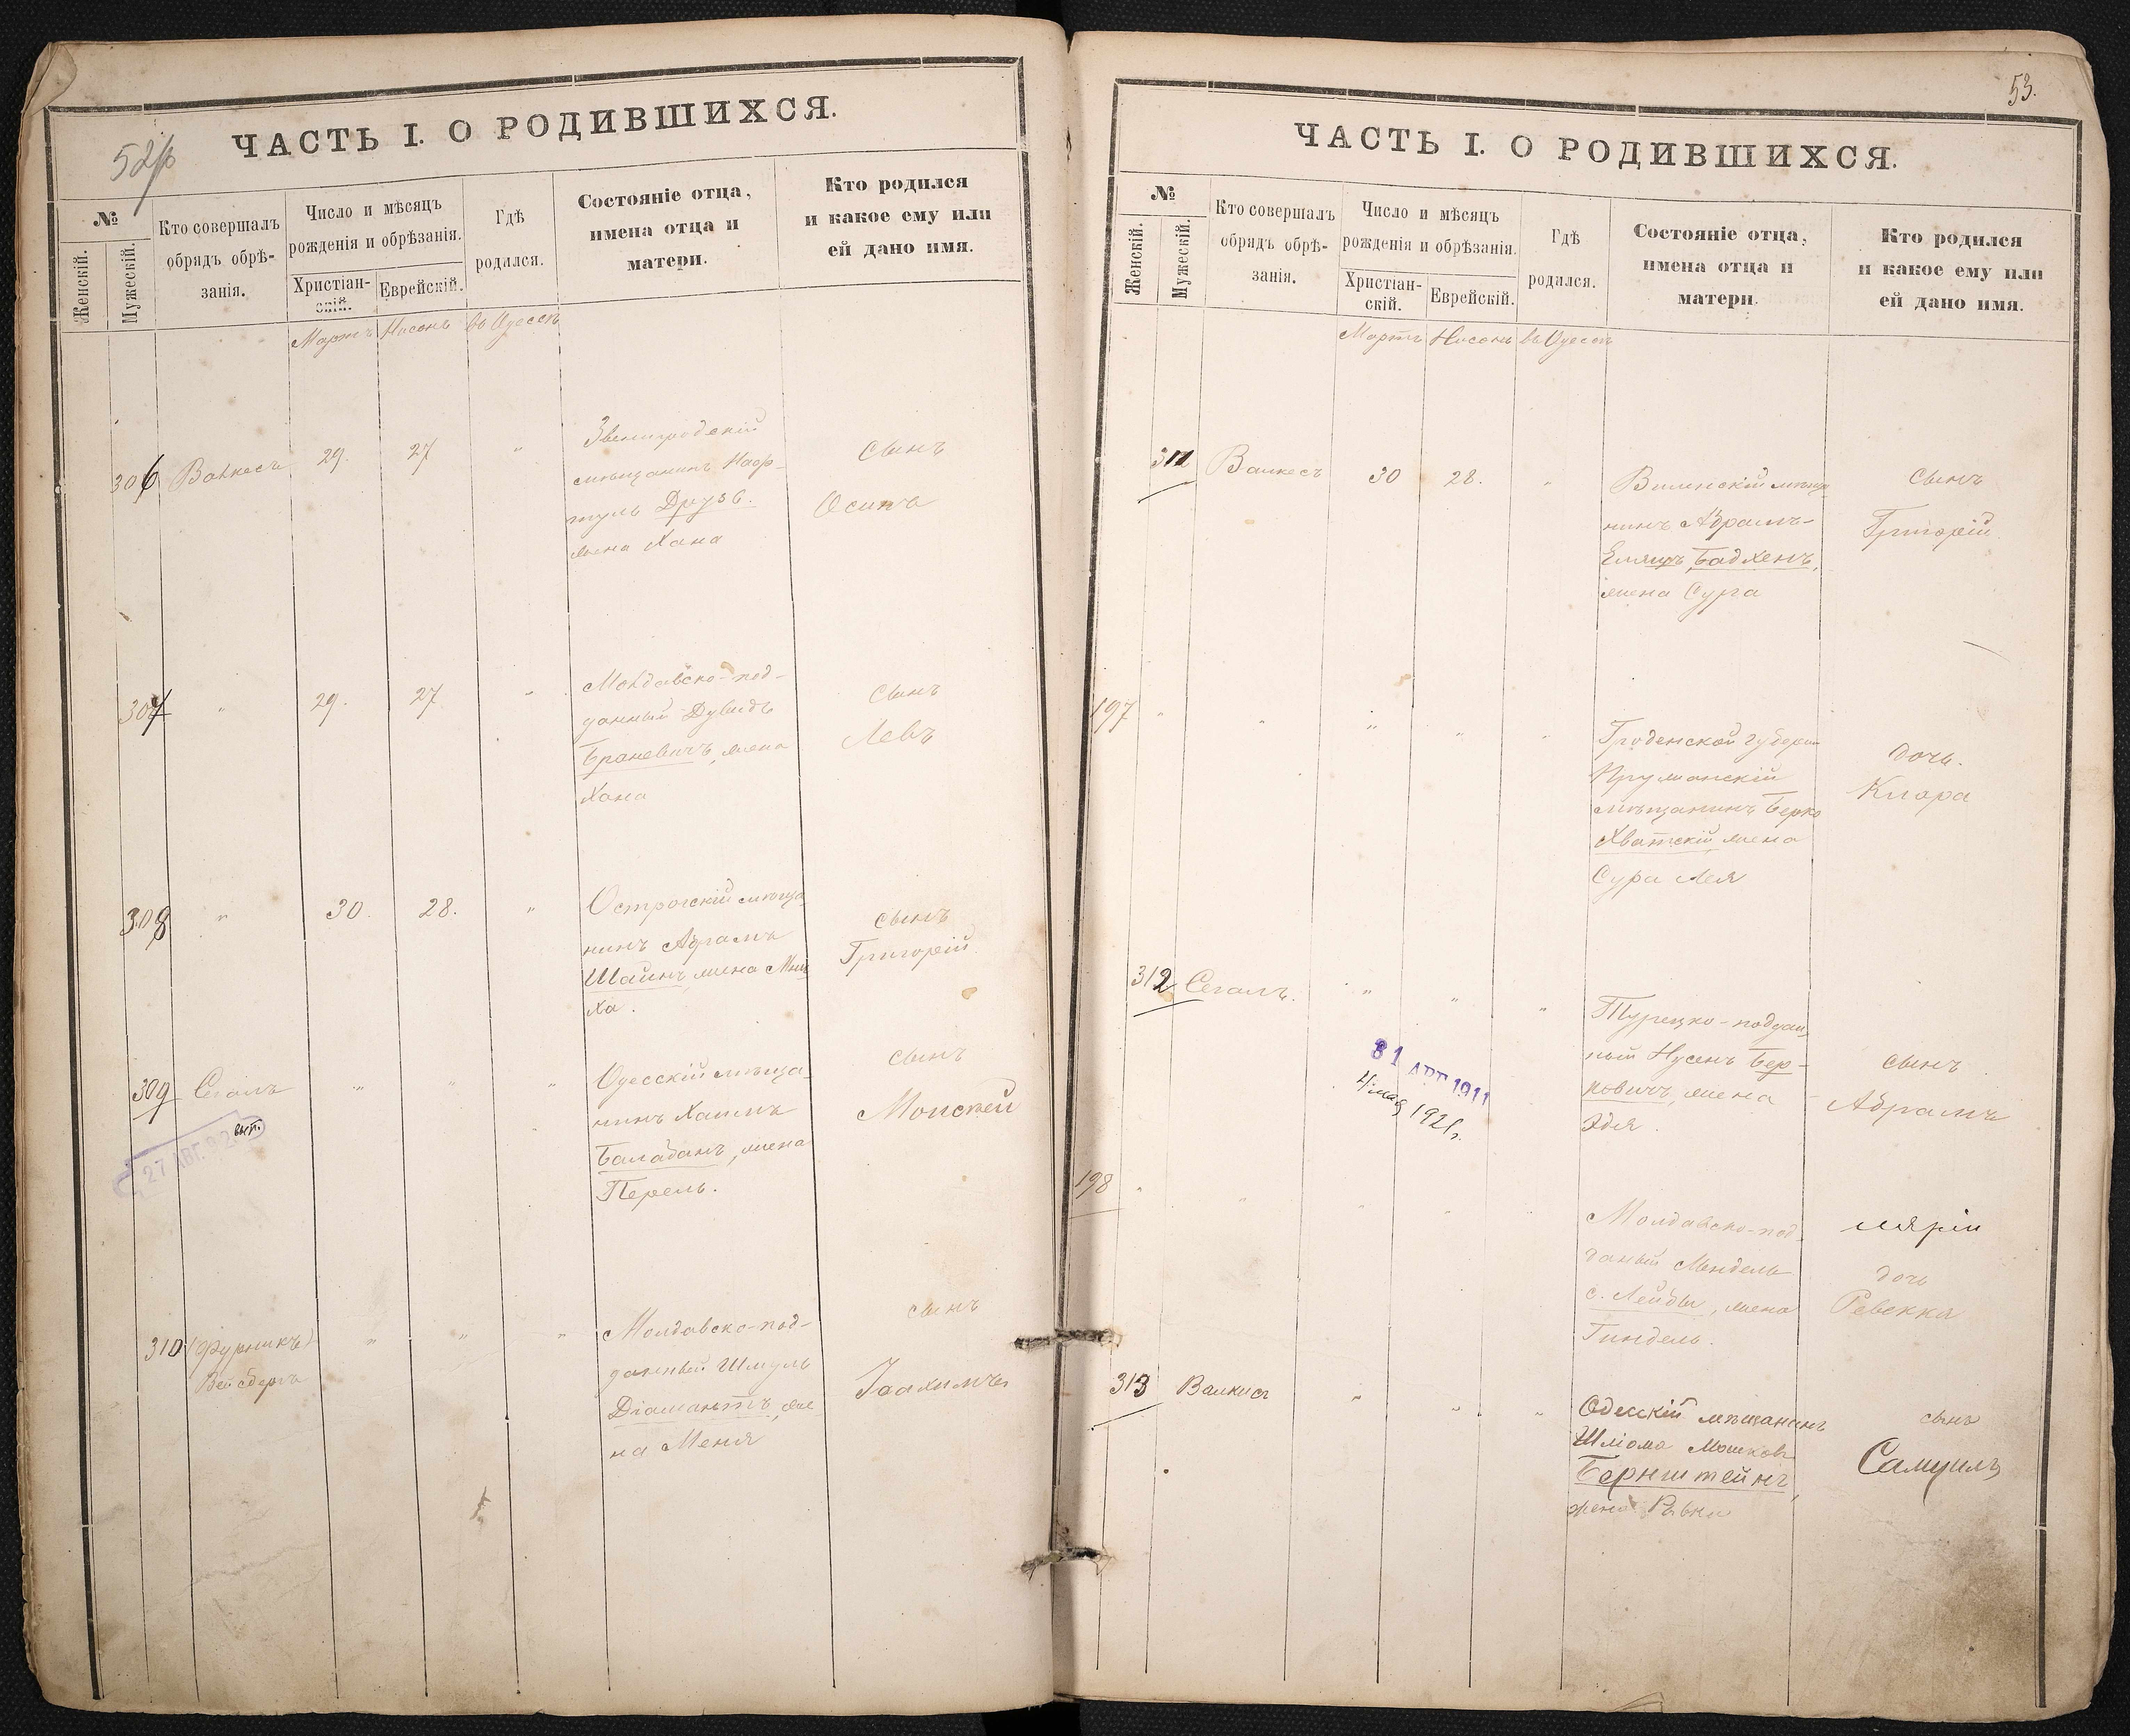 ЧАСТЬ I. О РОДИВШИХСЯ.
№
Женскій.
Мужескій.
Кто совершалъ
обрядъ обрѣ-
занія.
Число и мѣсяцъ
рожденія и обрѣзанія.
Христіан-
скій.
Еврейскій.
Гдѣ
родился.
Состояніе отца,
имена отца и
матери.
Кто родился
и какое ему или
ей дано имя.
Мартъ Нисонъ въ Одессѣ
306 29. 27 "
мѣщанинъ
Друзь.
жена Хана
сынъ
Осипъ
307 " 29. 27 "
Молдавско-под-
данный Дувидъ
Браневичъ, жена
Хана
сынъ
Левъ
308 " 30. 28. "
Острогскій мѣща
нинъ Абрамъ
Шаинъ, жена
ха.
сынъ
Григорій
309 Сегалъ " " "
27 АВГ.
вып.
Одесскій мѣща-
нинъ Хаимъ
Балабанъ, жена
Перель.
сынъ
Моисей
310 (Фурникъ)
Вейсбергъ
" " "
Молдавско-под-
данный Шмуль
Діамантъ, же
на Меня
сынъ
Іоахимъ
53.
ЧАСТЬ I. О РОДИВШИХСЯ.
№
Женскій.
Мужескій.
Кто совершалъ
обрядъ обрѣ-
занія.
Число и мѣсяцъ
рожденія и обрѣзанія.
Христіан-
скій.
Еврейскій.
Гдѣ
родился.
Состояніе отца,
имена отца и
матери.
Кто родился
и какое ему или
ей дано имя.
Мартъ Нисонъ въ Одессѣ
311 Валкесъ 30 28. "
Виленскій мѣща
нинъ Абрамъ-
Бадхенъ,
жена Сура
сынъ
Григорій
197 " " " " "
Гроденской губерніи
Пружанскій
мѣщанинъ Берко
Хватскій, жена
Сура Лея
дочь.
Клара
312 Сегалъ. " " "
31 АВГ 1911
4 мая 1921 г.
Турецко-поддан
ный Нусенъ Бер-
ковичъ, жена
Эдя.
сынъ
Абрамъ
198 " " " "
Молдавско-под
даный Мендель
с. Лейбы, жена
Гиндель.
дочь
Ревекка
313 " " "
Одесскій мѣщанинъ
Шліома Мошковъ
Бернштейнъ,
жена Ривка
сынъ
Самуилъ